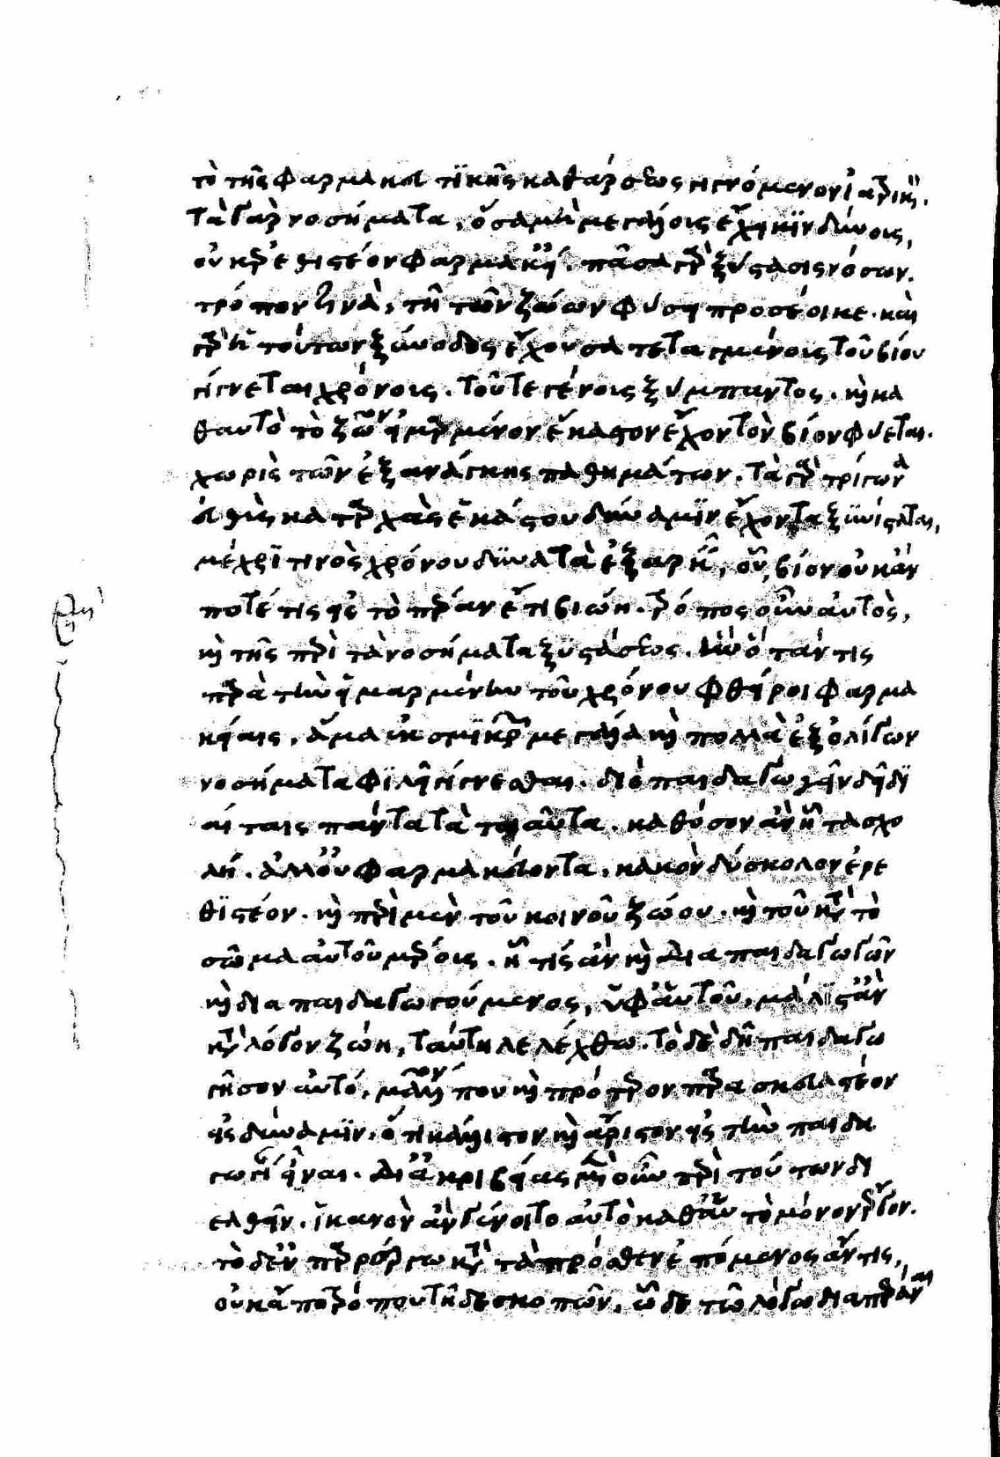 τὸ τῆς φαρμακευτικῆς καθάρσεως γιγνόμενον ἰατρικῆς.
τὰ γὰρ νοσήματα, ὅσα μὴ μεγάλους ἔχει κινδύνους,
οὐκ ἐρεθιστέον φαρμακείαις. πᾶσα γὰρ ξύστασις νόσων.
τρόπον τινὰ, τῇ τῶν ζώων φύσει προσέοικε. καὶ
γὰρ ἡ τούτων ξύνοδος ἔχουσα τεταγμένους τοῦ βίου
γίγνεται χρόνους. τοῦ τε γένους ξύμπαντος. καὶ κα
θαυτὸ τὸ ζῷον εἱμαρμένον ἕκαστον ἔχον τὸν βίον φύεται.
χωρὶς τῶν ἐξ ἀνάγκης παθημάτων. τὰ γὰρ τρίγωνα
εὐθὺς κατ ἀρχὰς ἑκάστου δύναμιν ἔχοντα ξυνίσταται,
μέχρι τινὸς χρόνου δυνατὰ ἐξαρκεῖν, οὗ, βίον οὐκ ἄν
ποτέ τις εἰς τὸ πέραν ἔτι βιώη. τρόπος οὖν αὐτὸς,
καὶ τῆς περὶ τὰ νοσήματα ξυστάσεως. ἣν ὅταν τις
παρὰ τὴν εἱμαρμένην τοῦ χρόνου φθείροι φαρμα
κείαις, ἅμα ἐκ σμικρῶν μεγάλα καὶ πολλὰ ἐξ ὀλίγων
νοσήματα φιλεῖ γίγνεσθαι. διὸ παιδαγωγεῖν δεῖ δι
αίταις πάντα τὰ τοιαῦτα. καθόσον ἂν ᾖ τῳ σχο
λή. ἀλλ οὐ φαρμακεύοντα, κακὸν δύσκολον ἐρε
θιστέον. καὶ περὶ μὲν τοῦ κοινοῦ ζώου. καὶ τοῦ κατὰ τὸ
σῶμα αὐτοῦ μέρους. ᾗ τίς ἂν καὶ διαπαιδαγωγῶν
καὶ διαπαιδαγωγούμενος, ὑφ αὑτοῦ, μάλιστ ἂν
κατὰ λόγον ζώη, ταύτῃ λελέχθω. τὸ δὲ δὴ παιδαγω
γῆσον αὐτό, μᾶλλόν που καὶ πρότερον παρασκευαστέον
εἰς δύναμιν. ὅ τι κάλλιστον καὶ ἄριστον εἰς τὴν παιδα
γωγίαν εἶναι. δι ἀκριβείας μὲν οὖν περὶ τούτων δι
ελθεῖν. ἱκανὸν ἂν γένοιτο αὐτὸ καθ αὑτὸ μόνον ἔργον.
τὸ δ ἐν παρέργῳ κατὰ τὰ πρόσθεν ἑπόμενος ἄν τις,
οὐκ ἄπο τρόπου τῇδε σκοπῶν. ὧδε τῷ λόγῳ διαπεράναι